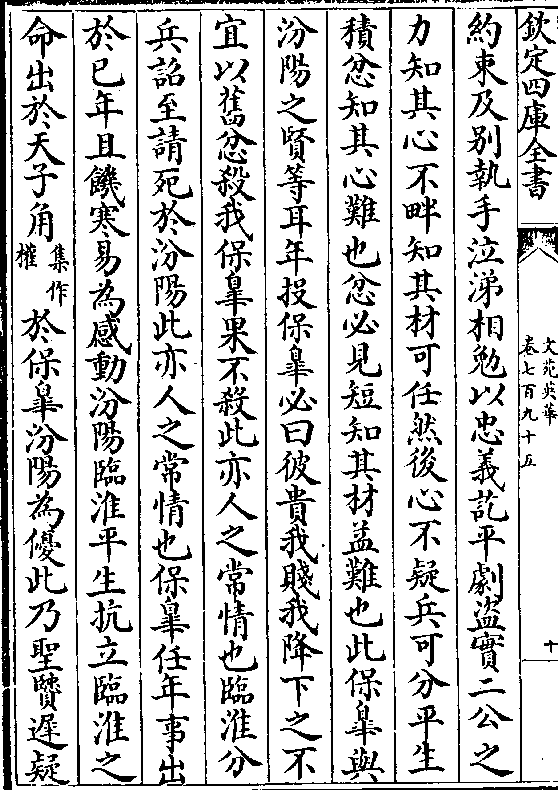 欽定四庫全書
文苑英華
卷七百九十五
十
約束及别執手泣涕相勉以忠義訖平劇盜實二公之
力知其心不畔知其材可任然後心不疑兵可分平生
積忿知其心難也忿必見短知其材益難也此保臯與
汾陽之賢等耳年投保臯必曰彼貴我賤我降下之不
宜以舊忿殺我保臯果不殺此亦人之常情也臨淮分
兵詔至請死於汾陽此亦人之常情也保臯任年事出
於已年且饑寒易為感動汾陽臨淮平生抗立臨淮之
命出於天子角集作權於保臯汾陽為優此乃聖賢遲疑